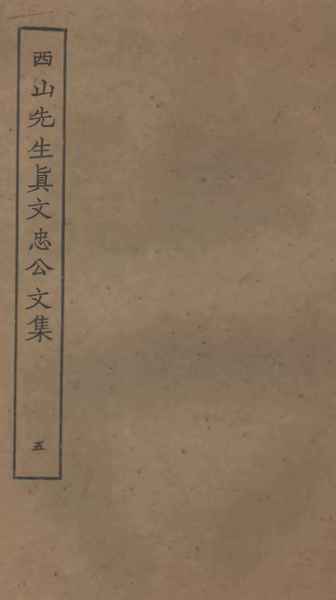 西山先生眞文忠公文集 五